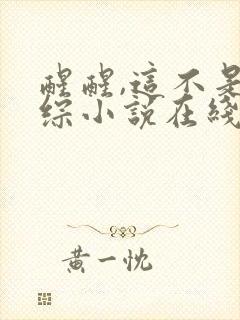 醒醒,這不是
综小說在綫
黃一忱